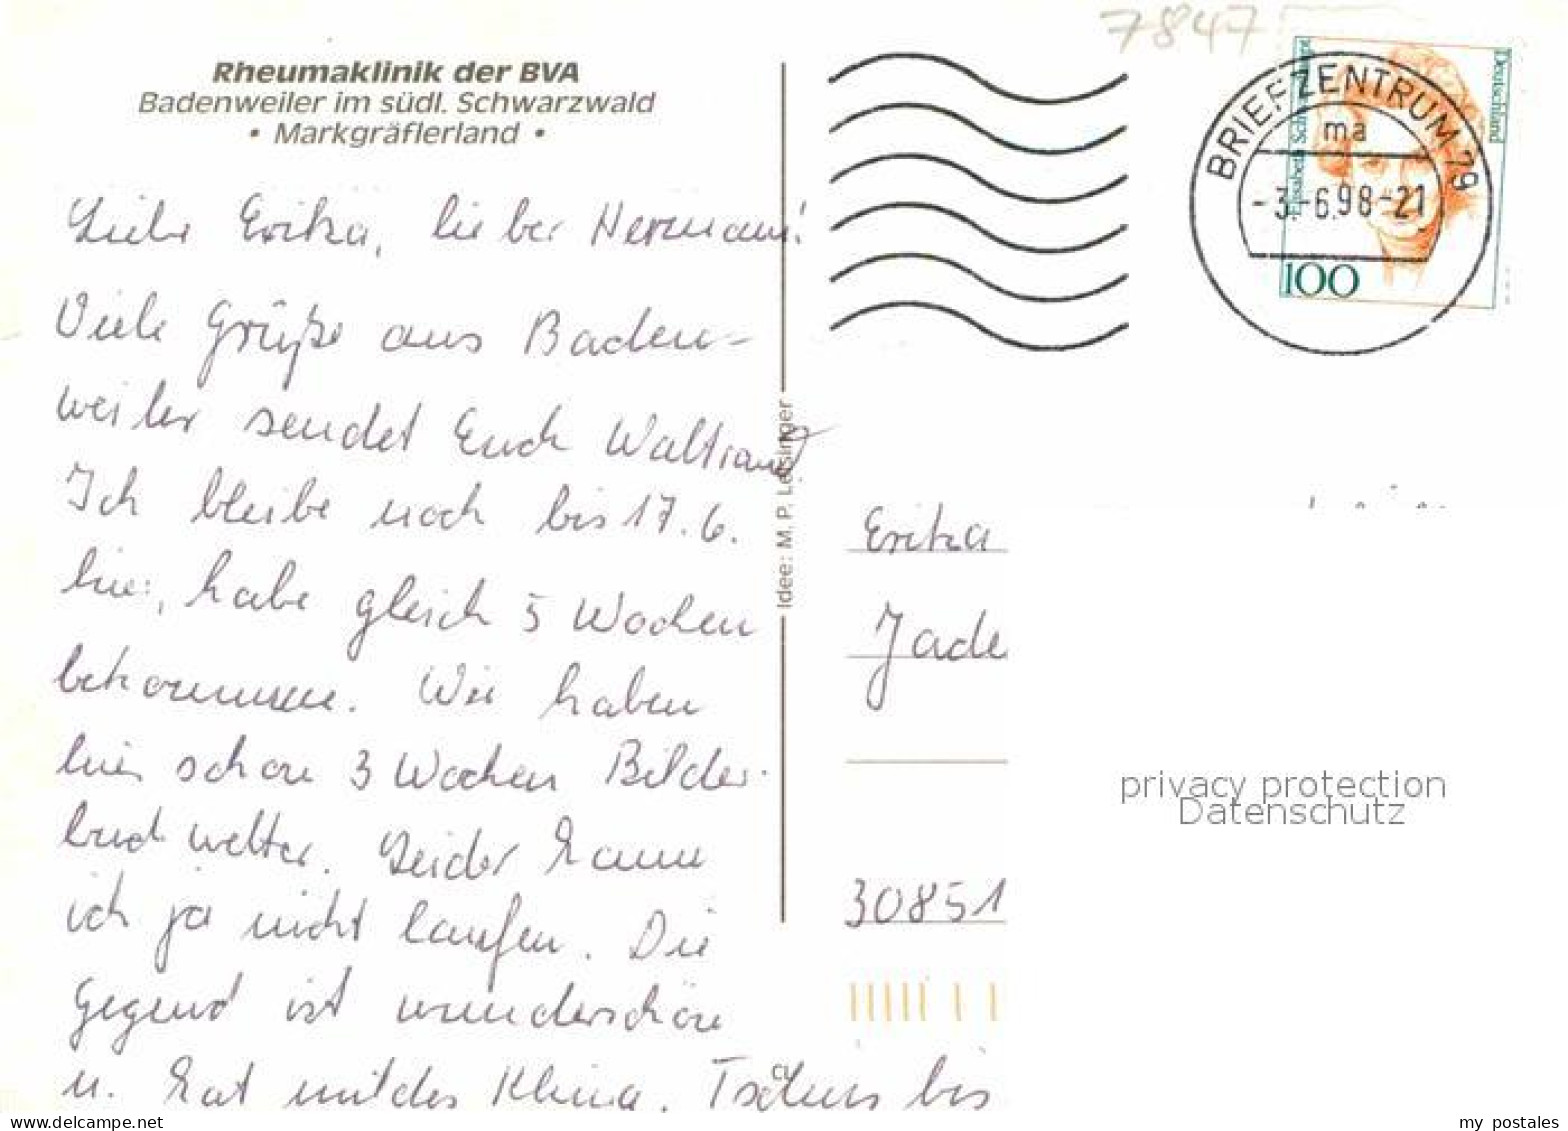 7847
Rheumaklinik der BVA
Badenweiler im südl. Schwarzwald
• Markgräflerland •
Deutschland
Elisabeth Schwarzhaupt
100
BRIEFZENTRUM 79
ma
-3.-6.98-21
Liebe Erika, lieber Hermann!
Viele Grüße aus Baden-
weiler sendet Euch Waltraud
Ich bleibe noch bis 17.6.
hier, habe gleich 5 Wochen
bekommen. Wir haben
hier schon 3 Wochen Bilder-
buchwetter. Leider kann
ich ja nicht laufen. Die
Gegend ist wunderschön
u. hat mildes Klima. Tschüs bis
Idee: M. P. Leisinger
CL
Erika
Jade
30851
privacy protection
Datenschutz
www.delcampe.net
my_postales